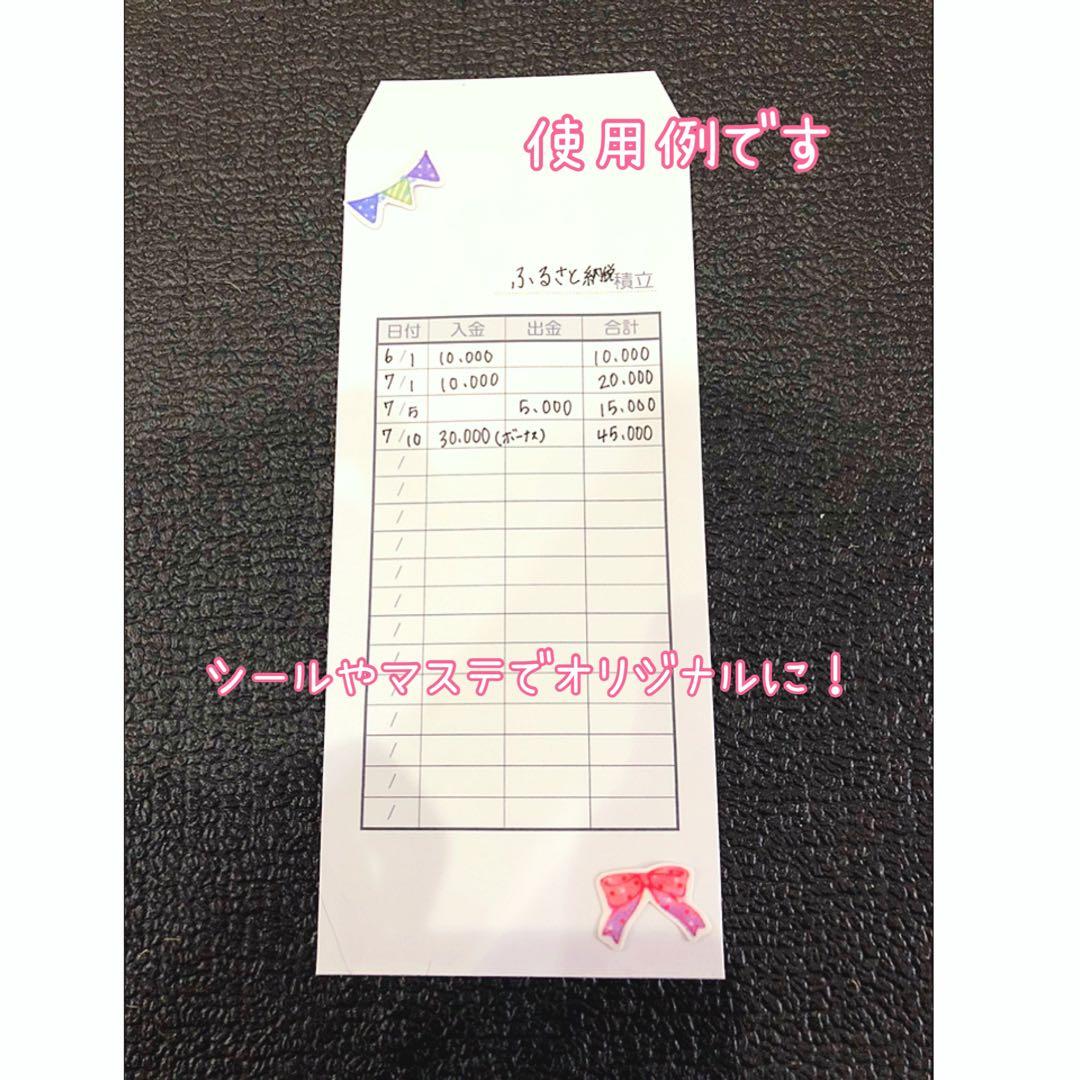 使用例です
ふるさと納税積立
日付 入金 出金 合計
6/1 10.000 10.000
7/1 10.000 20.000
7/5 5.000 15.000
7/10 30.000(ボーナス) 45.000
/
/
/
/
/
/
/
/
シールやマステでオリジナルに！
/
/
/
/
/